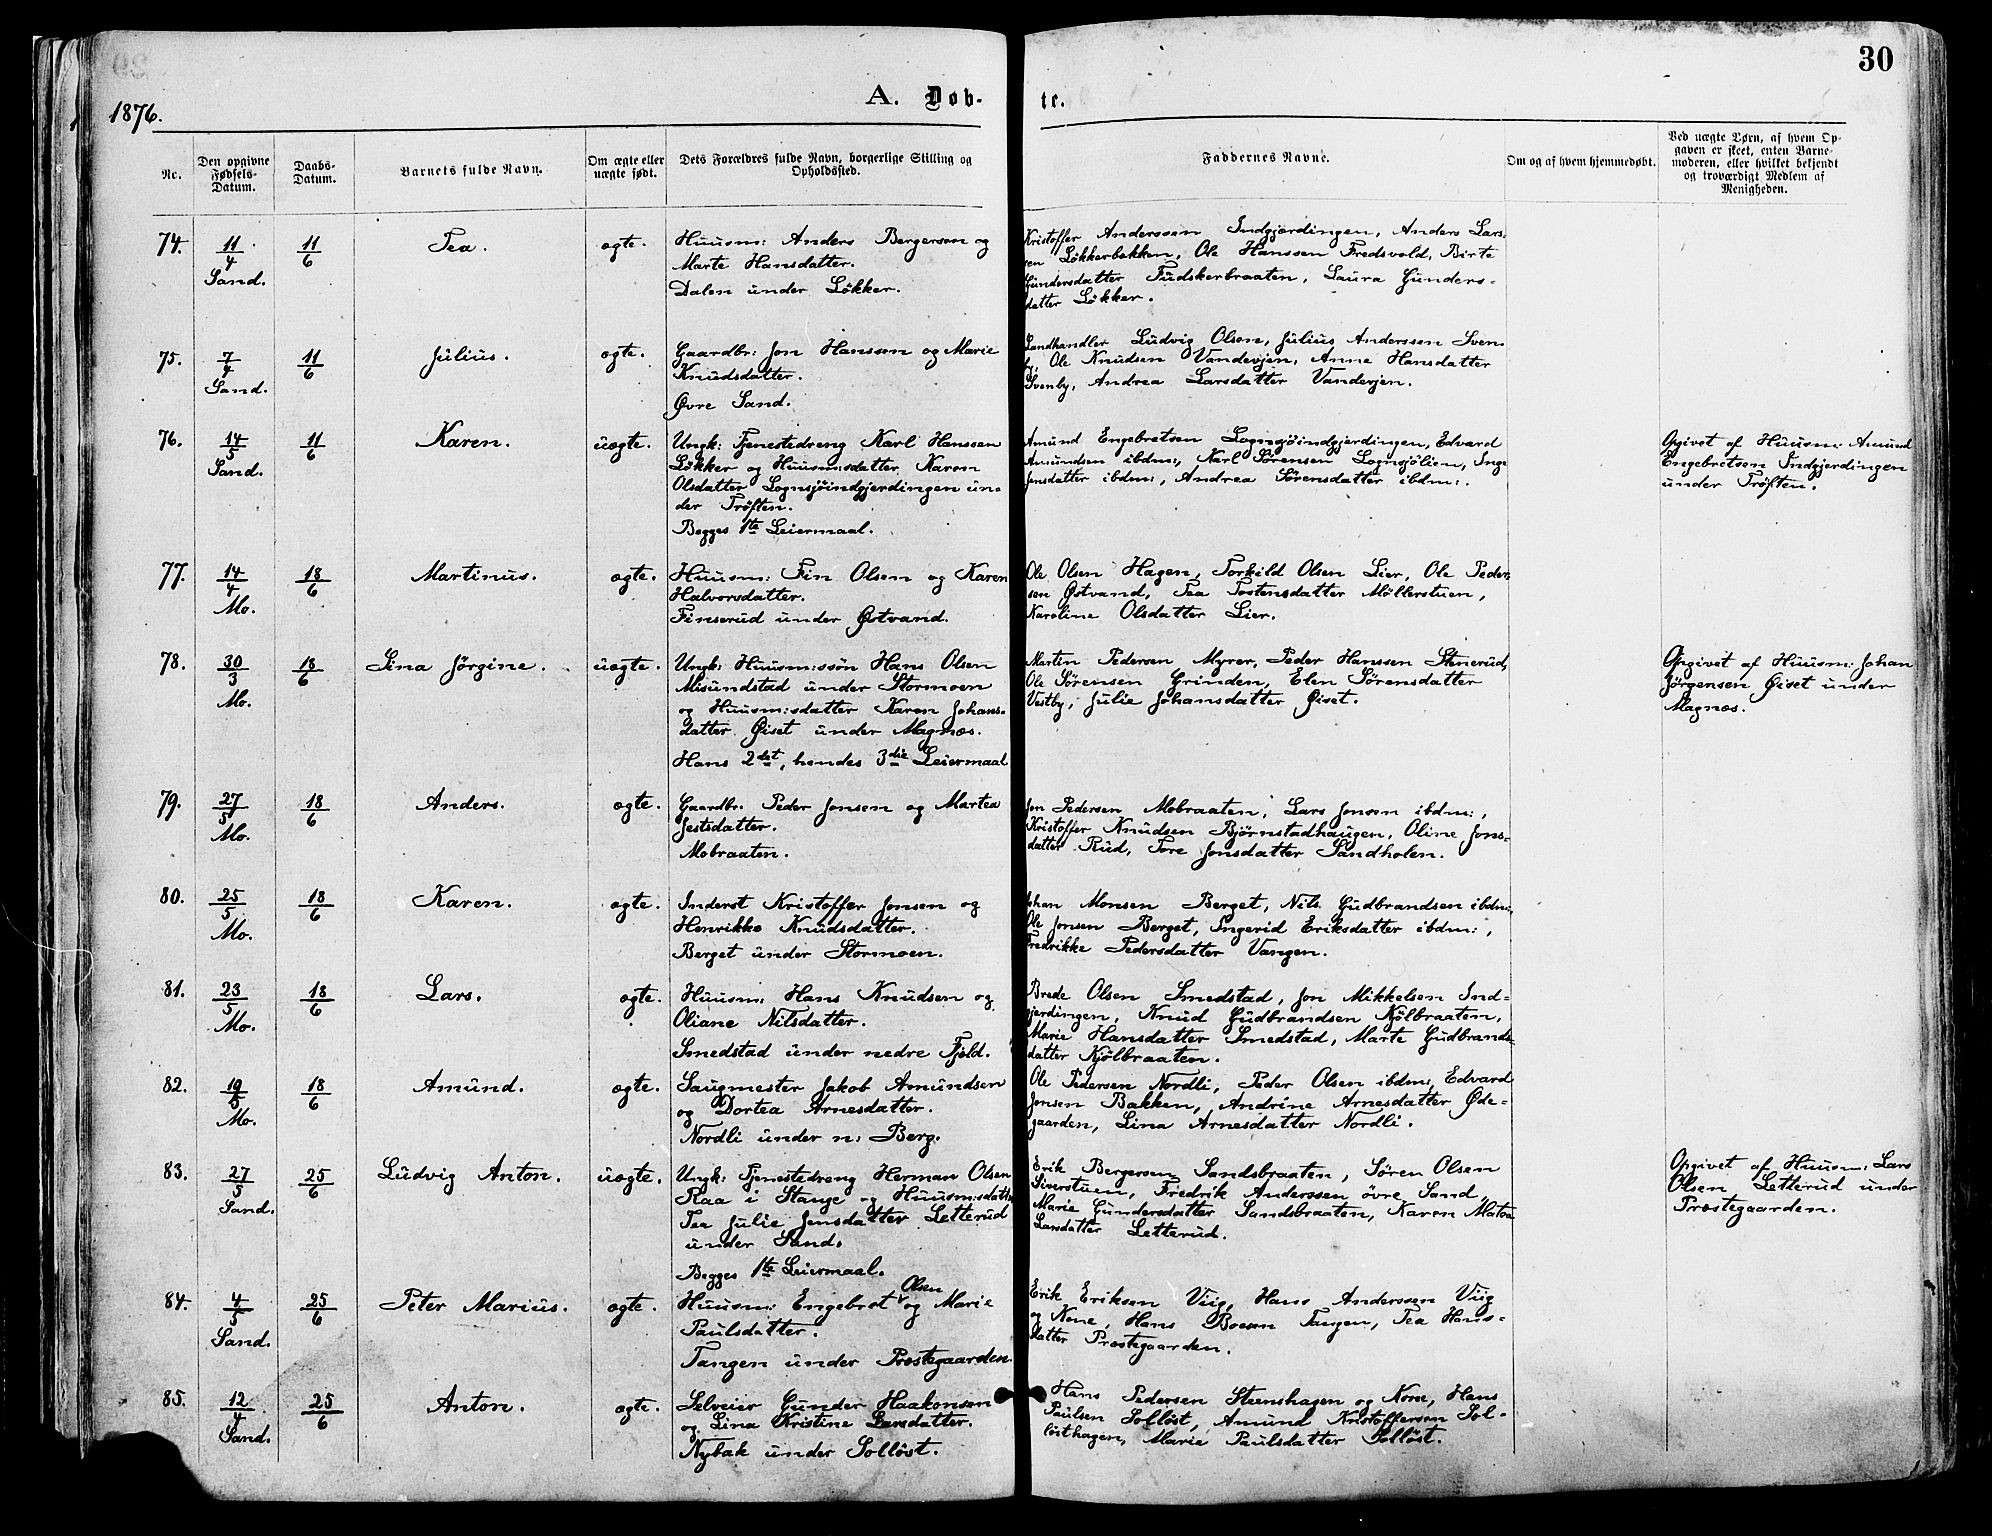 30
1876.
A. Døb-
te.
Nr.
Den opgivne
Fødsels-
Datum.
Daabs-
Datum.
Barnets fulde Navn.
Om ægte eller
uægte født.
Dets Forældres fulde Navn, borgerlige Stilling og
Opholdssted.
Faddernes Navne.
Om og af hvem hjemmedøbt.
Ved uægte Børn, af hvem Op-
gaven er skeet, enten Barne-
moderen, eller hvilket bekjendt
og troværdigt Medlem af
Menigheden.
74.
11/4
Sand.
11/6
Tea.
ægte.
Huusm: Anders Bergersen og
Marte Hansdatter.
Dalen under Løkker.
Kristoffer Anderssen Indgjærdingen, Anders Lars-
sen Løkkerbakken, Ole Hanssen Fredsvold, Birte
Gundersdatter Fudskerbraaten, Laura Gunders-
datter Løkker.
75.
7/4
Sand.
11/6
Julius.
ægte.
Gaardbr: Jon Hanssen og Marie
Knudsdatter.
Øvre Sand.
Landhandler Ludvig Olsen, Julius Anderssen Sven-
by, Ole Knudsen Vandevjen, Anne Hansdatter
Svenby, Andrea Larsdatter Vandevjen.
76.
14/5
Sand.
11/6
Karen.
uægte.
Ungk: Tjenestedreng Karl Hanssen
Løkker og Huusm:sdatter Karen
Olsdatter Lognsjöindgjerdingen un-
der Tröften.
Begges 1te Leiermaal.
Amund Engebretsen Lognsjöindgjerdingen, Edvard
Amundsen ibdm:, Karl Sörensen Lognsjölien, Inge
Jensdatter ibdm:, Andrea Sörensdatter ibdm:.
Opgivet af Huusm: Amund
Engebretsen Indgjerdingen
under Tröften.
77.
14/4
Mo.
18/6
Martinus.
ægte.
Huusm: Fin Olsen og Karen
Halvorsdatter.
Finserud under Østvand.
Ole Olsen Hagen, Torkild Olsen Lier, Ole Peder-
sen Østvand, Tea Tostensdatter Möllerstuen,
Karoline Olsdatter Lier.
78.
30/3
Mo.
18/6
Lina Jörgine.
uægte.
Ungk: Huusm:ssön Hans Olsen
Misundstad under Stormoen
og Huusm:sdatter Karen Johans-
datter Øiset under Magnæs.
Hans 2det, hendes 3die Leiermaal
Martin Pedersen Myrer, Peder Hanssen Stenerud,
Ole Sörensen Grinden, Elen Sörensdatter
Vestby, Julie Johansdatter Øiset.
Opgivet af Huusm: Johan
Jörgensen Øiset under
Magnæs.
79.
27/5
Mo.
18/6
Anders.
ægte.
Gaardbr. Peder Jensen og Martea
Jestsdatter.
Mobraaten.
Jon Pedersen Mobraaten, Lars Jensen ibdm:,
Kristoffer Knudsen Björnstadhaugen, Oline Jons-
datter Rud, Tore Jonsdatter Sandholen.
80.
25/5
Mo.
18/6
Karen.
ægte.
Inderst Kristoffer Jensen og
Henrikke Knudsdatter.
Berget under Stormoen.
Johan Monsen Berget, Nils Gudbrandsen ibdm:,
Ole Jensen Berget, Ingerid Eriksdatter ibdm:,
Fredrikke Pedersdatter Vangen.
81.
23/5
Mo.
18/6
Lars.
ægte.
Huusm: Hans Knudsen og
Oliane Nilsdatter.
Smedstad under nedre Fjeld.
Brede Olsen Smedstad, Jon Mikkelsen Ind-
gjerdingen, Knud Gudbrandsen Kjölbraaten,
Marie Hansdatter Smedstad, Marte Gudbrands-
datter Kjölbraaten.
82.
19/5
Mo.
18/6
Amund.
ægte.
Saugmester Jakob Amundsen
og Dortea Arnesdatter.
Nordli under n: Berg.
Ole Pedersen Nordli, Peder Olsen ibdm:, Edvard
Jensen Bakken, Andrine Arnesdatter Øde-
gaarden, Lina Arnesdatter Nordli.
83.
27/5
Sand.
25/6
Ludvig Anton.
uægte.
Ungk: Tjenestedreng Herman Olsen
Raa i Stange og Huusm:sdatt:
Tea Julie Jensdatter Letterud
under Sand.
Begges 1te Leiermaal.
Erik Bergersen Sandsbraaten, Sören Olsen
Siverstuen, Fredrik Anderssen övre Sand,
Marie Gundersdatter Sandsbraaten, Karen Matea
Larsdatter Letterud.
Opgivet af Huusm: Lars
Olsen Letterud under
Præstegaarden.
84.
4/5
Sand.
25/6
Peter Marius.
ægte.
Olsen
Huusm: Engebret og Marie
Paulsdatter.
Tangen under Præstegaarden.
Erik Eriksen Viig, Hans Anderssen Viig
og Kone, Hans Boesen Tangen, Tea Hans-
datter Præstegaarden.
85.
12/4
Sand.
25/6
Anton.
ægte.
Selveier Gunder Haakonsen
og Lina Kristine Larsdatter.
Nybak under Solløst.
Hans Pedersen Steenshagen og Kone, Hans
Paulsen Solløst, Amund Kristoffersen Sol-
løsthagen, Marie Paulsdatter Solløst.